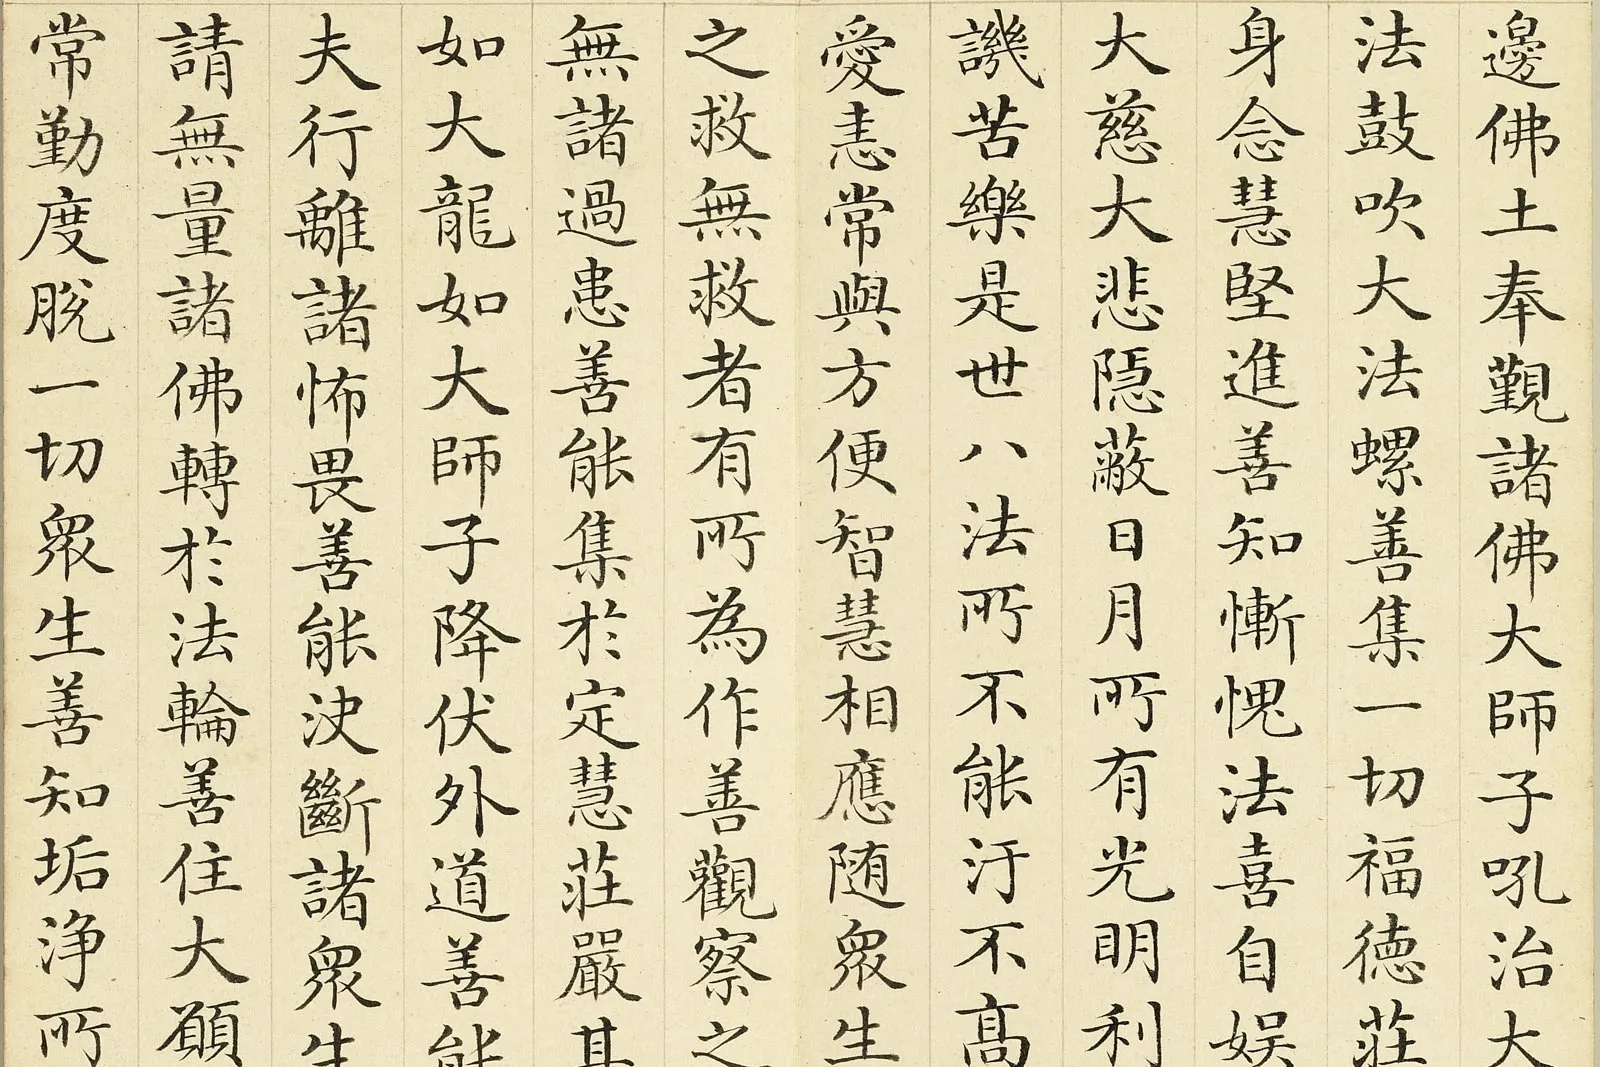 邊佛土奉覲諸佛大師子吼治大
法鼓吹大法螺善集一切福德莊
身念慧堅進善知慚愧法喜自娛
大慈大悲隱蔽日月所有光明利
譏苦樂是世八法所不能汙不高
愛恚常與方便智慧相應随眾生
之救無救者有所為作善觀察之
無諸過患善能集於定慧莊嚴其
如大龍如大師子降伏外道善能
夫行離諸怖畏善能決斷諸眾生
請無量諸佛轉於法輪善住大願
常勤度脫一切眾生善知垢淨所